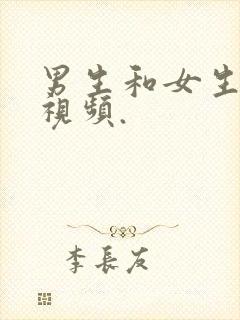 男生和女生
視頻.
李長友